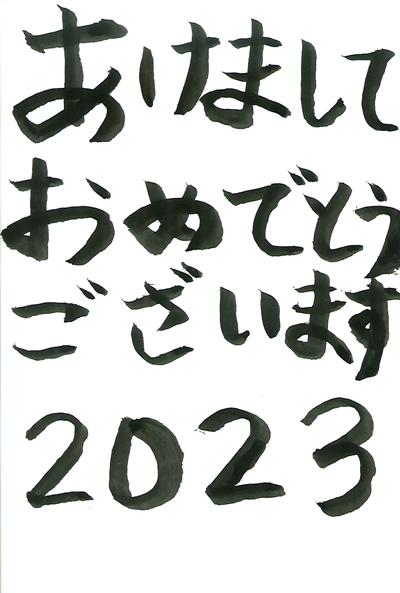 あけまして
おめでとう
ございます
2023